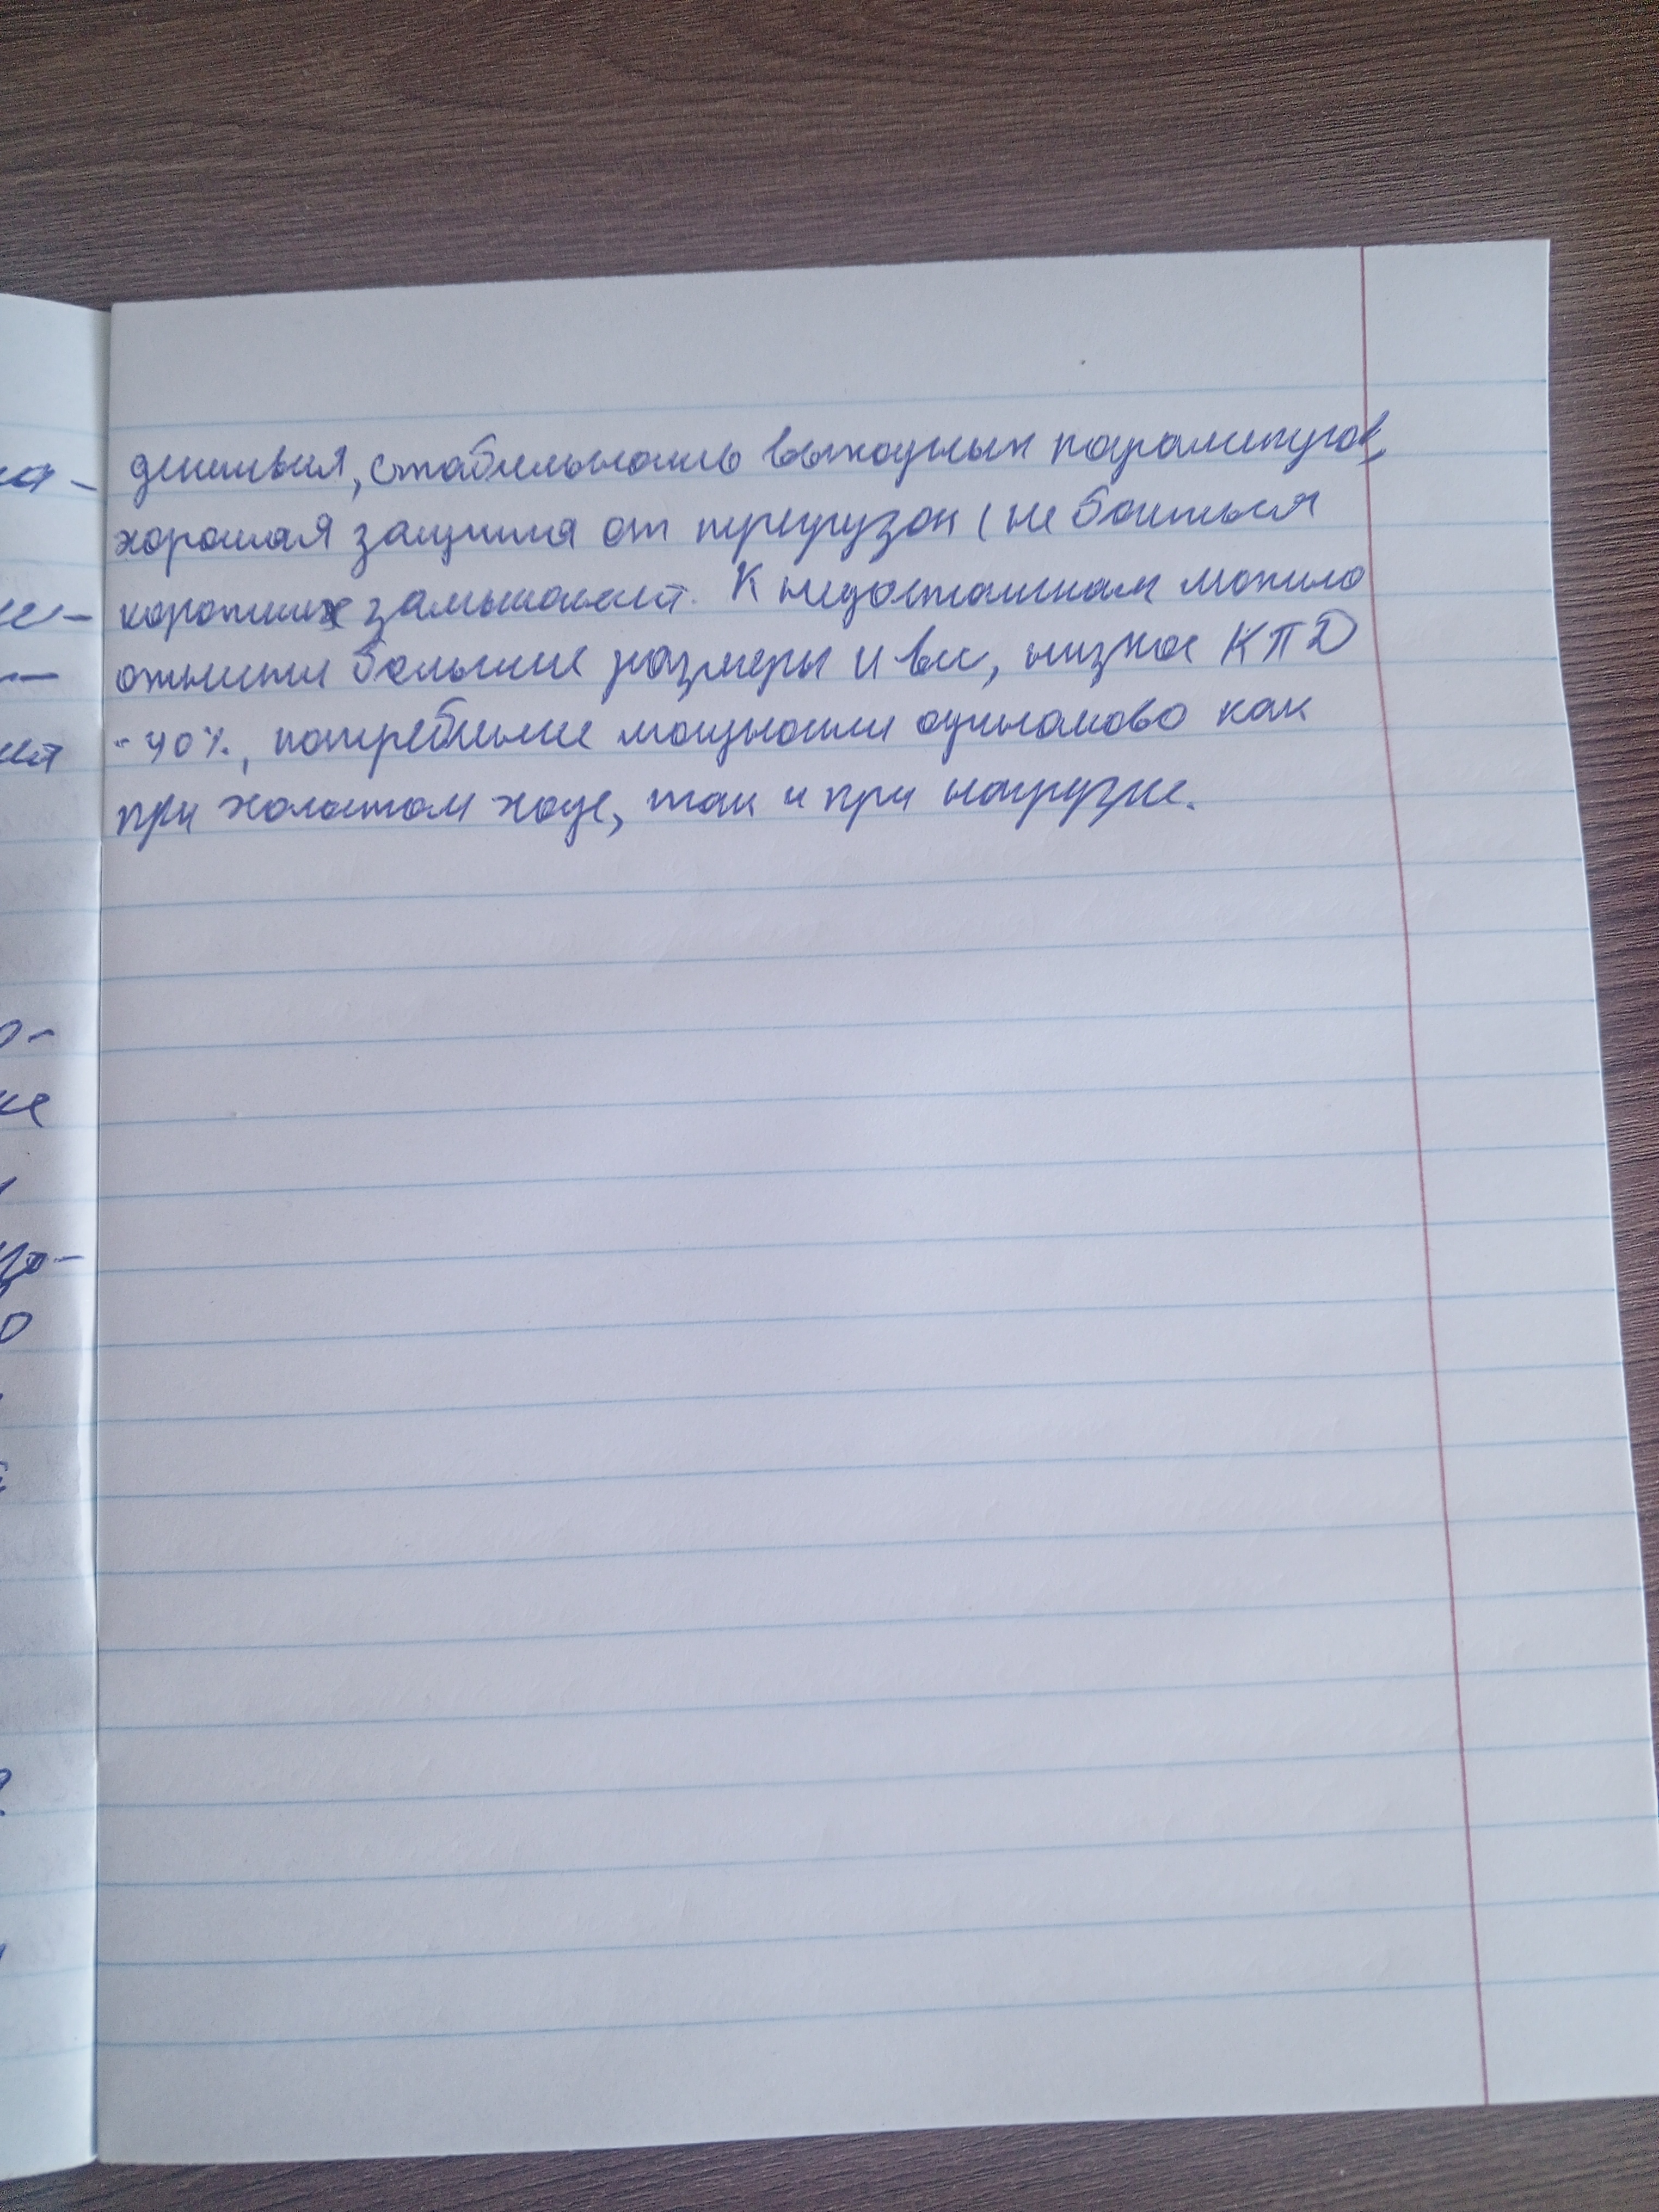 действия, стабильность выходных параметров,
хорошая защита от перегрузок (не боиться
коротких замыканий. К недостаткам можно
отнести большие размеры и вес, низкое КПД
- 40%, потребление мощности одинаково как
при холостом ходе, так и при нагрузке.